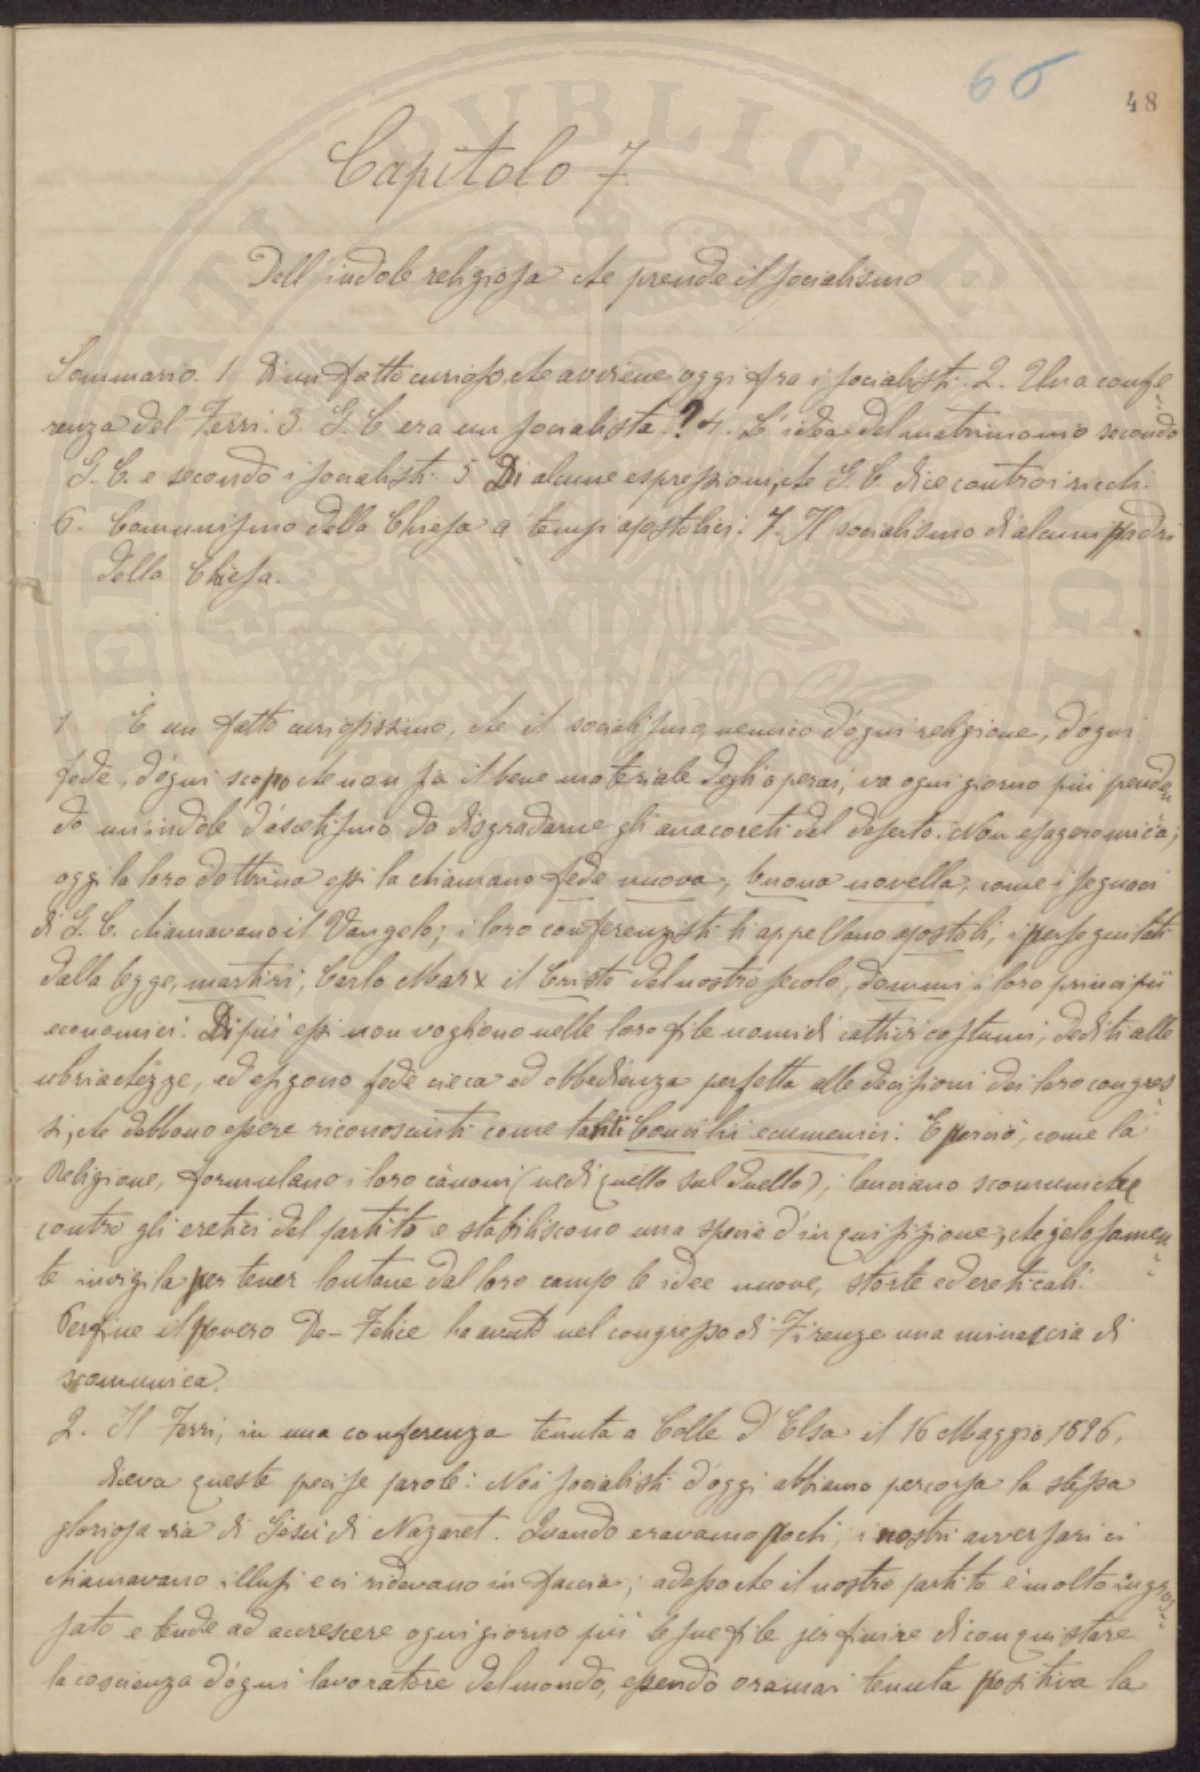 66
48
Capitolo 7.
Dell'indole religiosa che prende il socialismo
Sommario. 1 Di un fatto curioso, che avviene oggi fra i socialisti. 2. Una confe
renza del Ferri. 3. G. C. era un socialista? 4. L'idea del matrimonio secondo
G. C. e secondo i socialisti. 5 Di alcune espressioni, che G. C. dice contro i ricchi.
6. Comunismo della Chiesa a' tempi apostolici. 7. Il socialismo di alcuni padri
della Chiesa.
1 È un fatto curiosissimo, che il socialismo, nemico d'ogni religione, d'ogni
fede, d'ogni scopo che non sia il bene materiale degli operai, va ogni giorno più prenden
do un'indole d'ascetismo da disgradarne gli anacoreti del deserto. Non esagero mica;
oggi la loro dottrina essi la chiamano fede nuova, buona novella, come i seguaci
di G. C. chiamavano il Vangelo; i loro conferenzisti li appellano apostoli, i perseguitati
dalla legge, martiri, Carlo Marx il Cristo del nostro secolo, dommi i loro principii
economici. Di più essi non vogliono nelle loro file uomini di cattivi costumi, dediti alle
ubriachezze, ed esigono fede cieca ed obbedienza perfetta alle decisioni dei loro congres
si, che debbono essere riconosciuti come tanti Concilii ecumenici. E perciò, come la
Religione, formulano i loro canoni (vedi quello sul duello), lanciano scomuniche
contro gli eretici del partito e stabiliscono una specie d'inquisizione, che gelosamen
te invigila per tener lontane dal loro campo le idee nuove, storte ed ereticali.
Perfine il povero De-Felice ha avuto nel congresso di Firenze una minaccia di
scomunica.
2. Il Ferri, in una conferenza tenuta a Colle d'Elsa il 16 Maggio 1896,
diceva queste precise parole: Noi socialisti d'oggi abbiamo percorsa la stessa
gloriosa via di Gesù di Nazaret. Quando eravamo pochi, i nostri avversari ci
chiamavano illusi e ci ridevano in faccia; adesso che il nostro partito è molto ingros
sato e tende ad accrescere ogni giorno più le sue file per finire di conquistare
la coscienza d'ogni lavoratore del mondo, essendo oramai tenuta positiva la